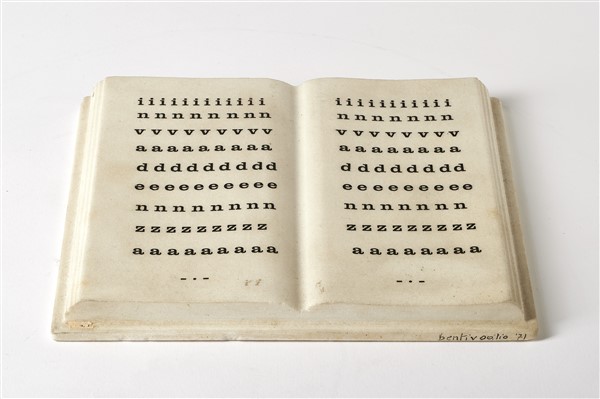 i i i i i i i i i i i
n n n n n n n n
v v v v v v v v v
a a a a a a a a
d d d d d d d d d
e e e e e e e e e e
n n n n n n n n
z z z z z z z z z
a a a a a a a a a
- . -
i i i i i i i i i i
n n n n n n n
v v v v v v v v
a a a a a a a a
d d d d d d d d
e e e e e e e e e
n n n n n n n
z z z z z z z z z
a a a a a a a a
- . -
bentivoglio '71